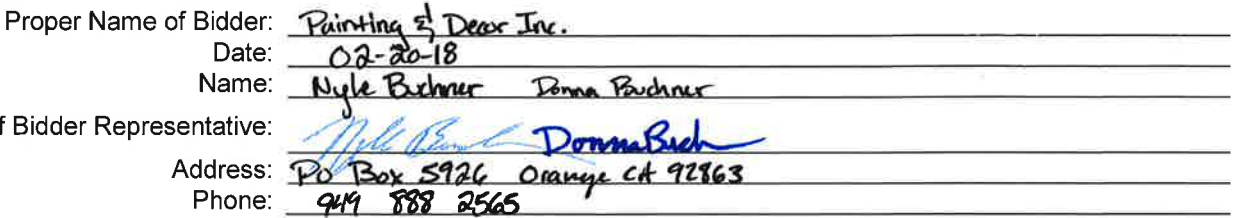 Proper Name of Bidder: Painting & Decor Inc.
Date: 02-20-18
Name: Nyle Buchner Donna Buchner
f Bidder Representative: Nyle Donna Buch
Address: PO Box 5926 Orange CA 92863
Phone: 949 888 2565